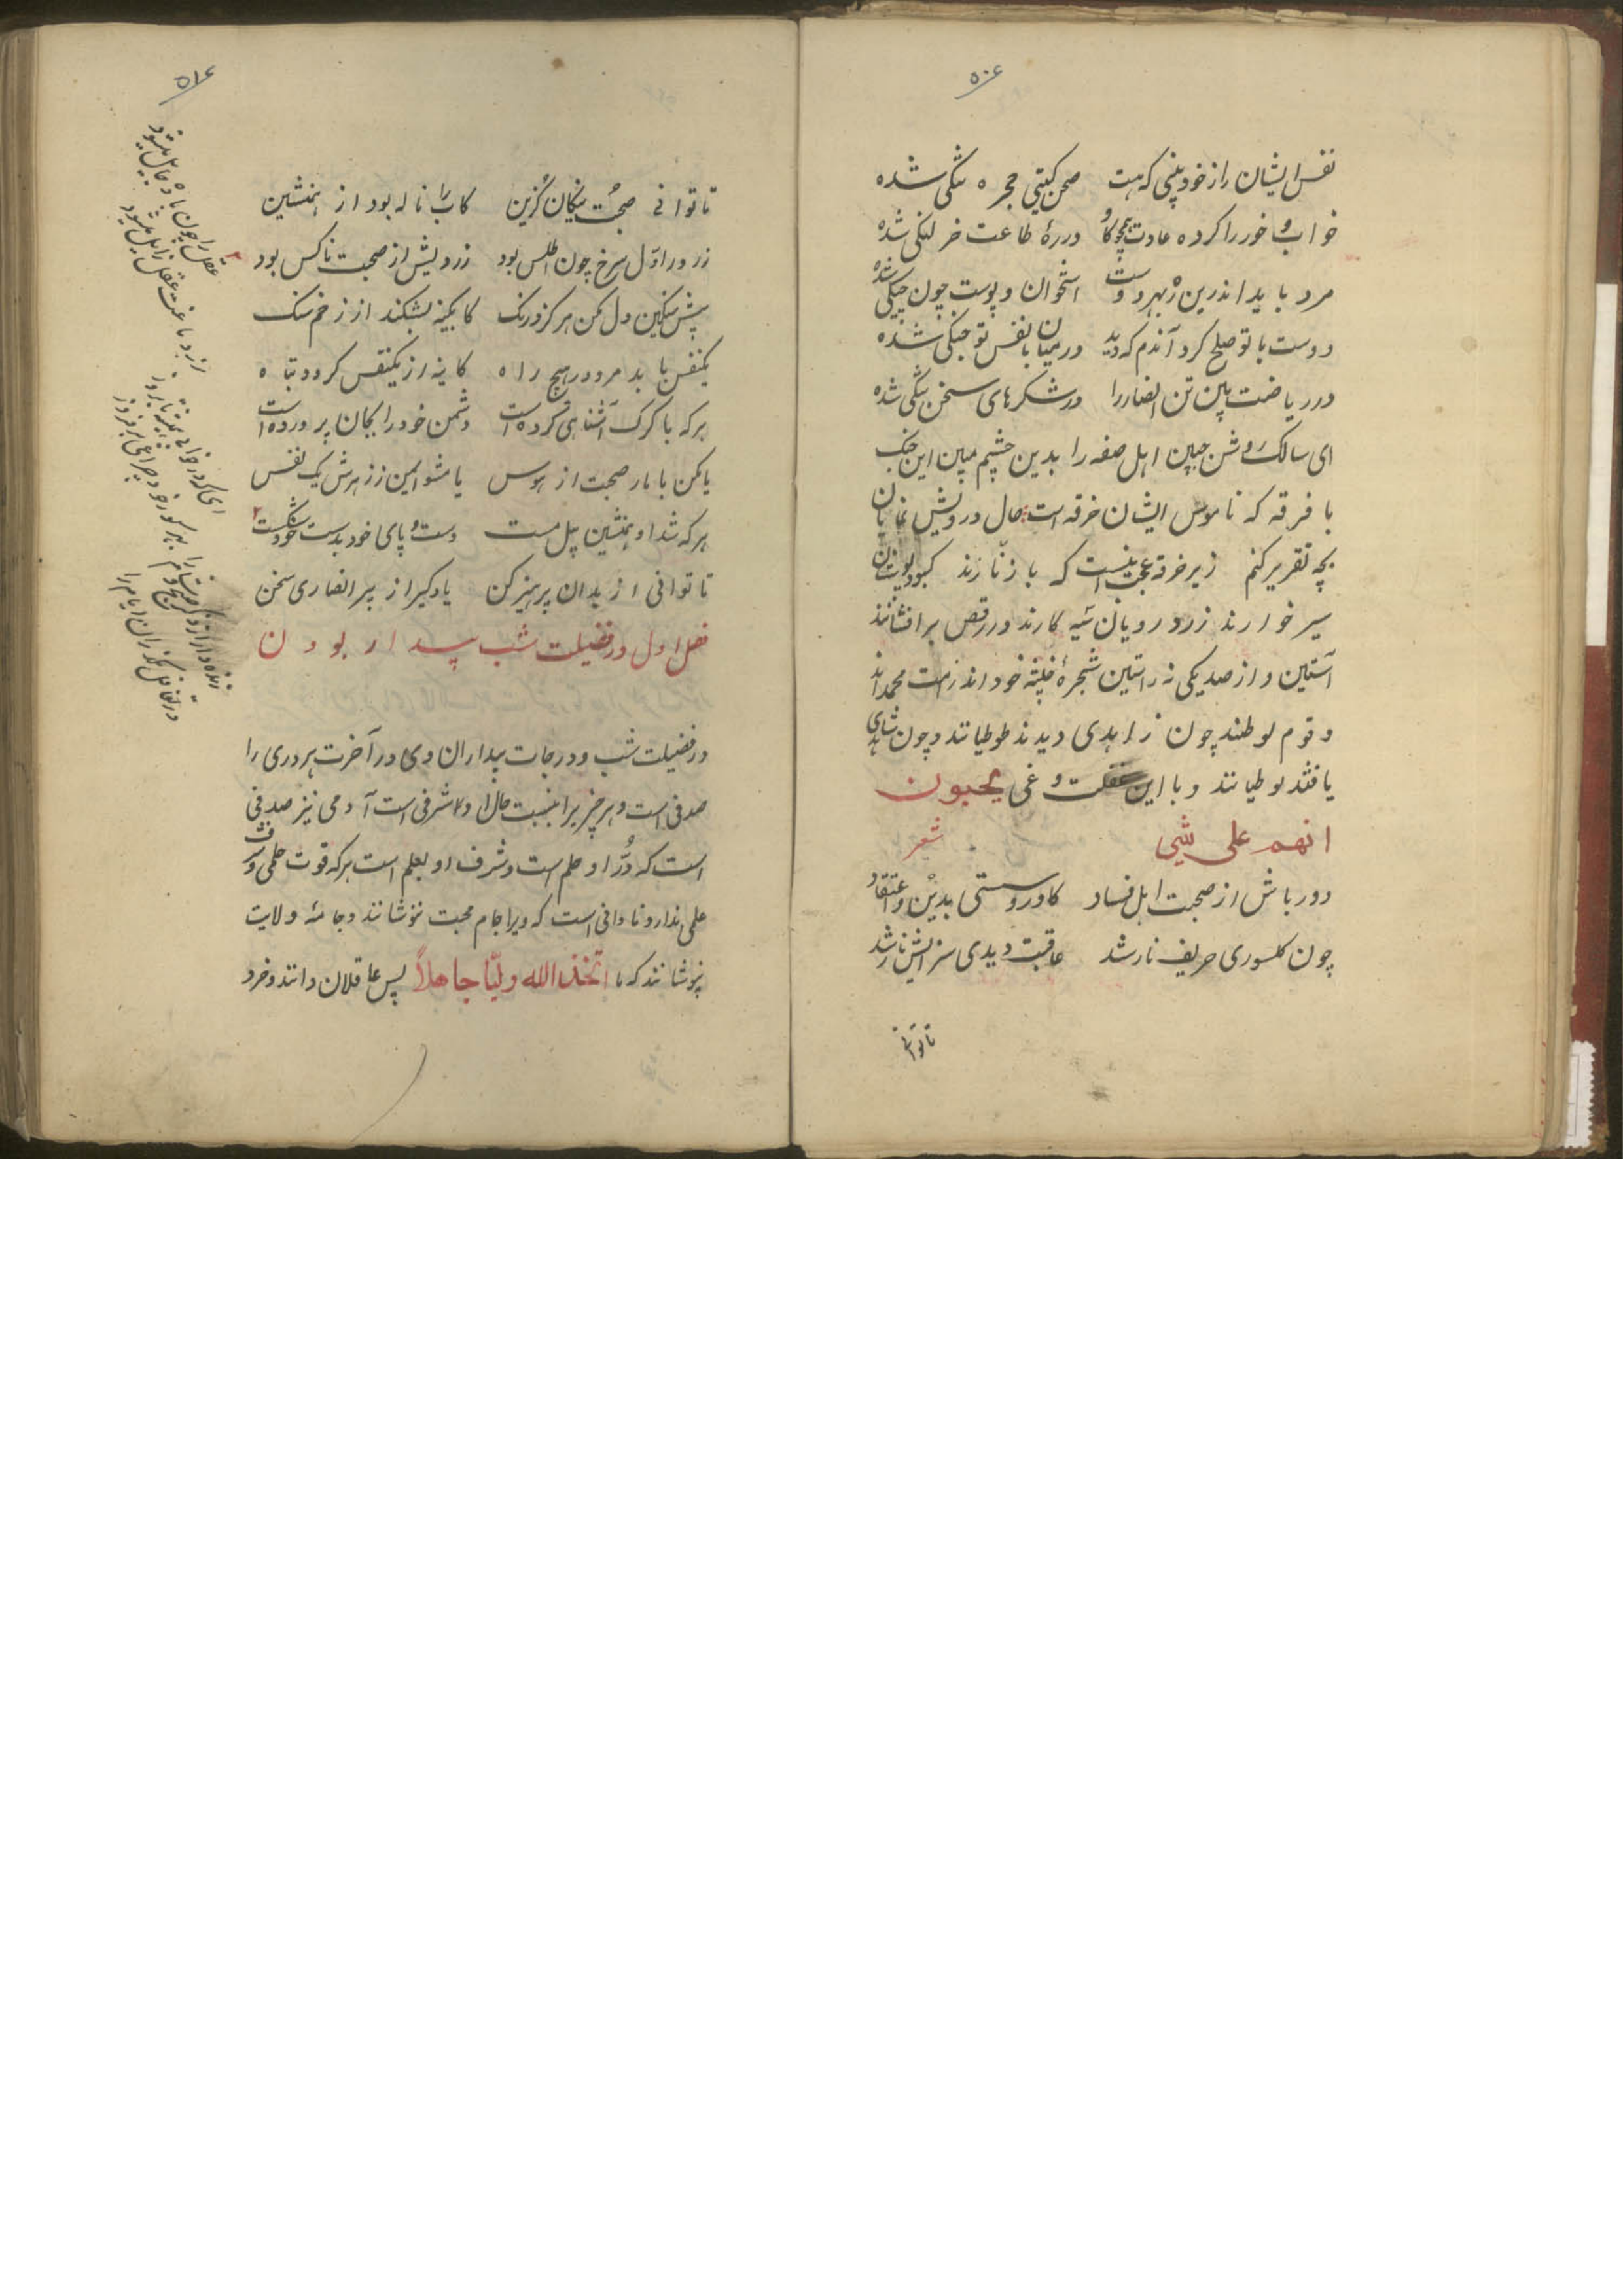 ۵۰۶
نفس ایشان را ز خود بینی که هست صحن کیتی حجره تنکی شده
خواب و خور را کرده عادت همچو کاو در ره طاعت خر لنکی شده
مرد باید اندرین ره بهر دوست استخوان و پوست چون چنکی شده
دوست با تو صلح کرد آندم که دید در میان با نفس تو جنکی شده
در ریاضت بین تن انصار را در شکرهای سخن تنکی شده
ای سالک روشن جبین اهل صفه را بدین چشم مبین این خنک
با فرقه که ناموس ایشان خرقه است حال درویش نمایان
بچه تقریر کنم زیر خرقه عجب نیست که با زنارند کبود پوشان
سیر خوارند زرد رویان سیه کارند در رقص برافشانند
آستین و از صد یکی نه راستین شجرهٔ خبیثه خود اند ز امت محمد اند
و قوم لوطند چون زاهدی دیدند طوطیانند و چون شاهدی
یافتند لوطیانند و با این غفلت و غی یحبون
انهم علی شیی شعر
دور باش از صحبت اهل فساد کاورد سستی بدین و اعتقاد
چون کلسوری حریف نار شد عاقبت دیدی سزایش نار شد
تا توانی
۵۱۶
تا توانی صحبت نیکان کزین کاب را ناله بود از همنشین
زر در اول سرخ چون اطلس بود زردیش از صحبت ناکس بود
پیش سنکین دل مکن هرکز درنک کابکینه بشکند از زخم سنک
یکنفس با بد مرو در هیچ راه کاینه از یکنفس کردد تباه
هرکه با کرک آشناهی کرده است دشمن خود را بجان پرورده است
یا مکن با مار صحبت از هوس یا مشو ایمن ز زهرش یک نفس
هرکه شد او همنشین پیل مست دست و پای خود بدست خود شکست
تا توانی از بدان پرهیز کن یاد کیر از پیر انصاری سخن
فصل اول در فضیلت شب بیدار بودن
در فضیلت شب و درجات بیداران وی در آخرت هر دری را
صدفی است و هر چیز را بنسبت حال او شرفی است آدمی نیز صدفی
است که دُرّ او حلم است و شرف او بعلم است هرکه قوت حلمی و شرف
علمی ندارد نادانی است که ویرا جام محبت ننوشانند و جامهٔ ولایت
نپوشانند که ما اتّخذ الله ولیّا جاهلاً پس عاقلان دانند و خرد
عقل را چون باده زایل میشود